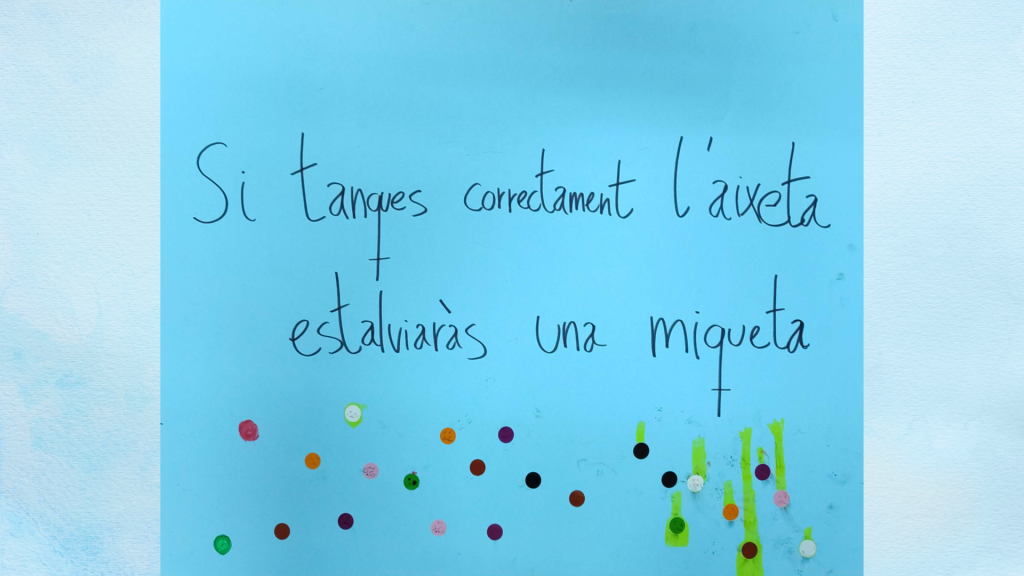 Si tanques correctament l'aixeta
estalviaràs una miqueta